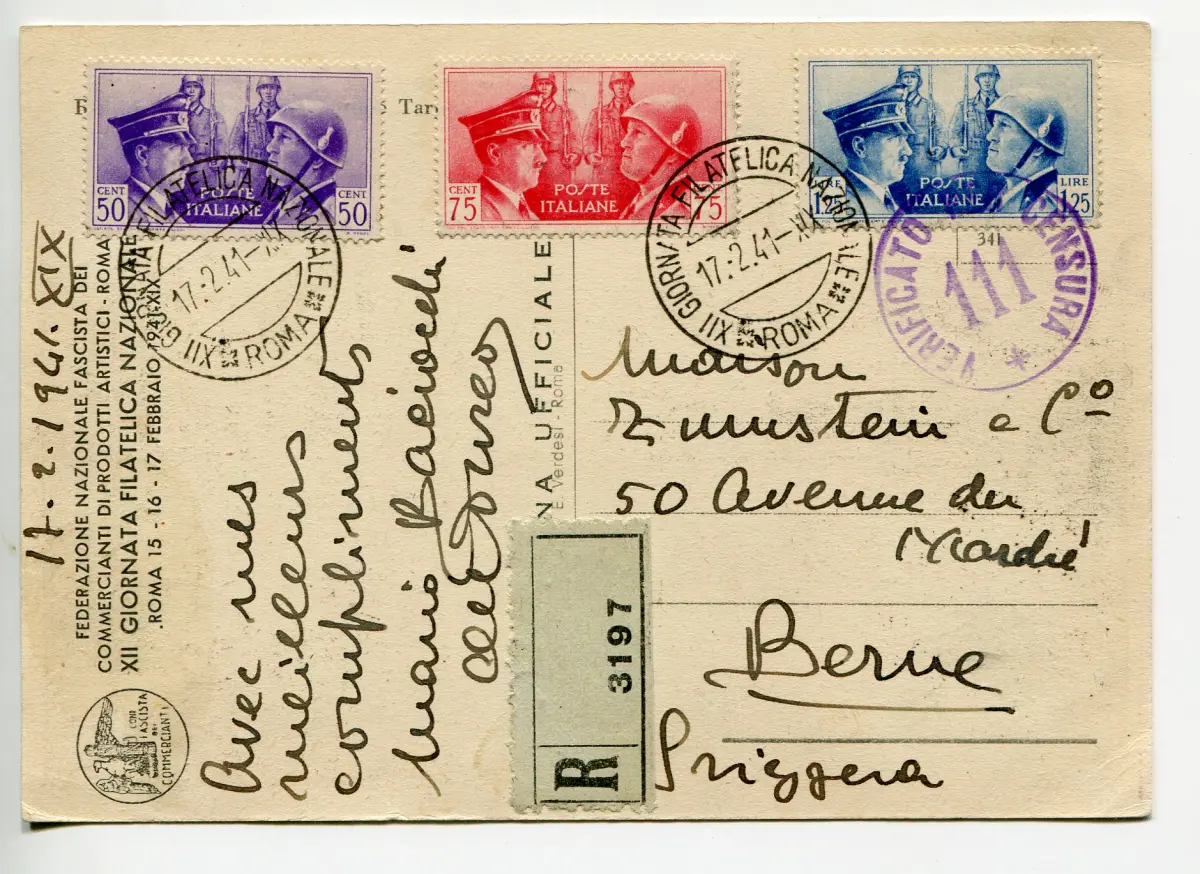 Tar
CENT 50
POSTE ITALIANE
CENT 50
CENT 75
POSTE ITALIANE
75
LIRE 1.25
POSTE ITALIANE
LIRE 1.25
XII GIORNATA FILATELICA NAZIONALE
17.2.41-XIX
ROMA
XII GIORNATA FILATELICA NAZIONALE
17.2.41-XIX
ROMA
VERIFICATO CENSURA
111
341
17.2.1941.XIX
FEDERAZIONE NAZIONALE FASCISTA DEI
COMMERCIANTI DI PRODOTTI ARTISTICI - ROMA
XII GIORNATA FILATELICA NAZIONALE
ROMA 15 - 16 - 17 FEBBRAIO 1941-XIX
CONF. FASCISTA DEI COMMERCIANTI
Avec mes
meilleurs
compliments
Mario
NA UFFICIALE
E. Verdesi - Roma
R
3197
Maison
Zumstein e Cº
50 Avenue du
Marché
Berne
Svizzera